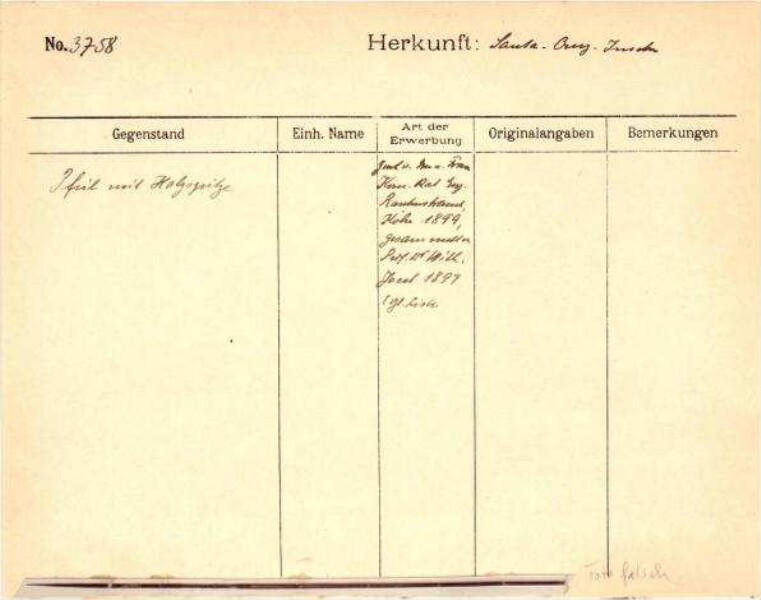 No. 3758
Herkunft: Santa-Cruz-Inseln
Gegenstand
Einh. Name
Art der Erwerbung
Originalangaben
Bemerkungen
Pfeil mit Holzspitze
Gesch. v. Frau
Kom. Rat Eug.
Rautenstrauch,
Köln 1899,
gesammelt v.
Prof. Dr Wilh.
Joest 1897
Vgl. Liste
falsch